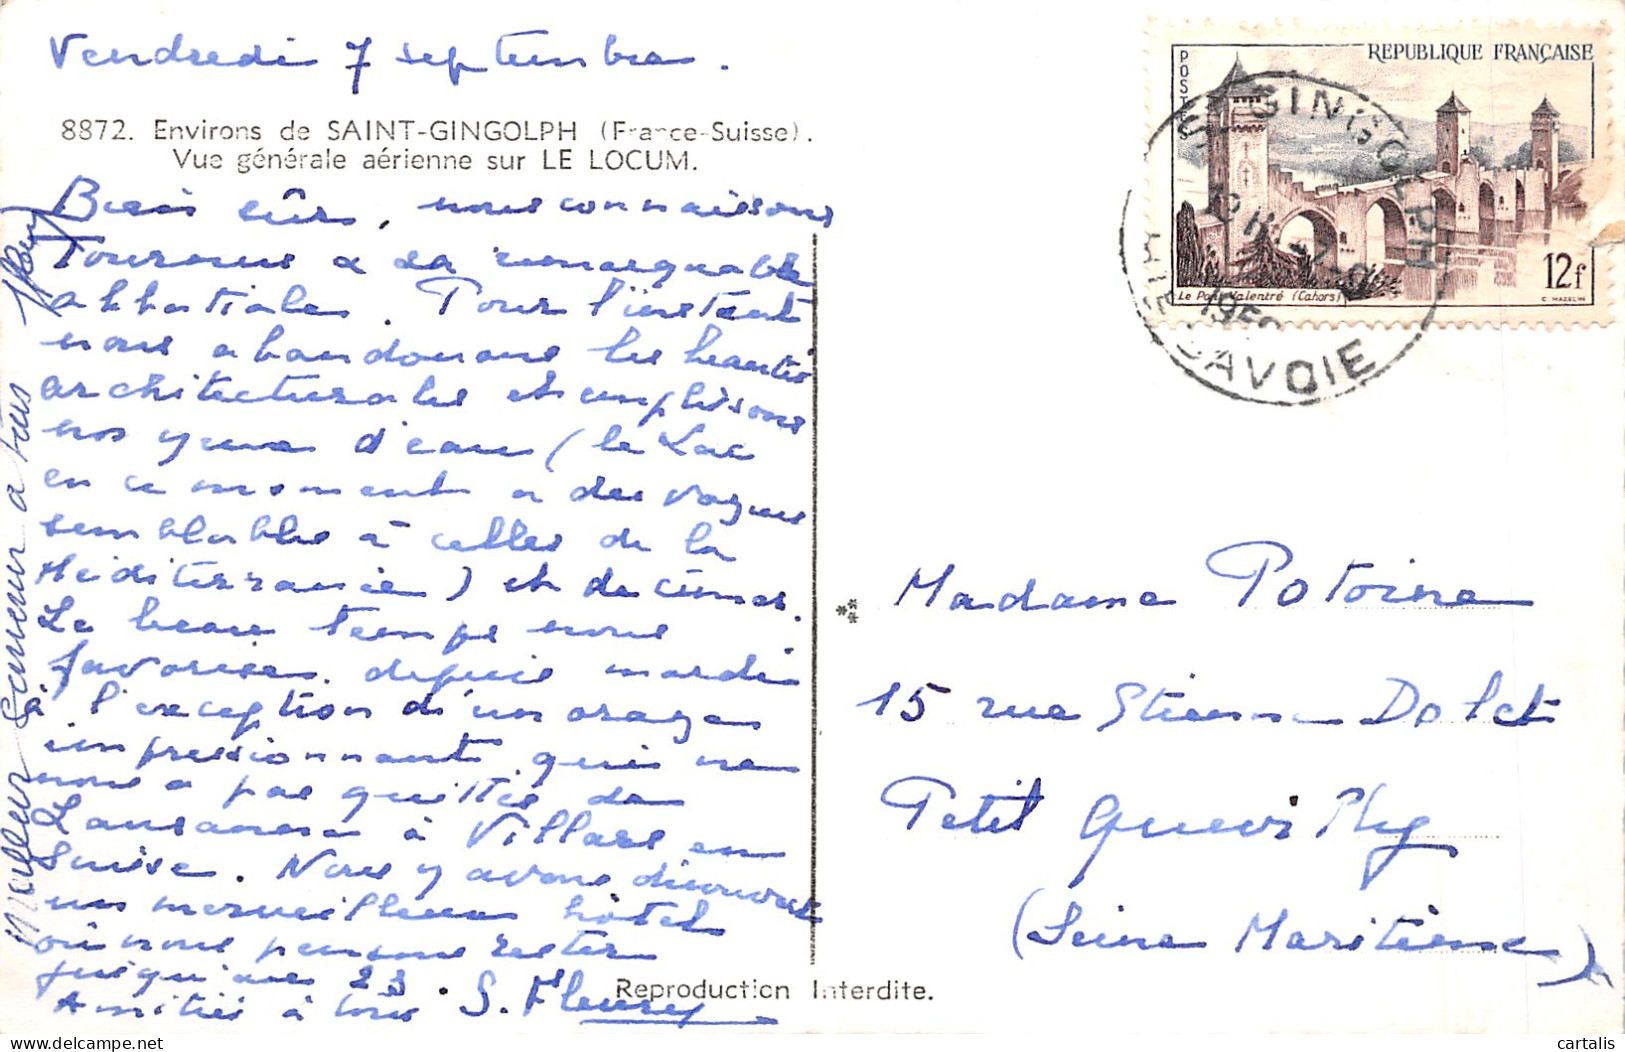 Vendredi 7 septembre.
8872. Environs de SAINT-GINGOLPH (France-Suisse).
Vue générale aérienne sur LE LOCUM.
Bien sûr, nous connaissons
Tournus & sa remarquable
abbatiale. Pour l'instant
nous abandonnons les beautés
architecturales et emplissons
nos yeux d'eau (le Lac
en ce moment a des vagues
semblables à celles de la
Méditerranée) et de cimes.
Le beau temps nous
favorise depuis mardi
à l'exception d'un orage
impressionnant qui ne
nous a pas quittés de
Lausanne à Villars en
Suisse. Nous y avons découvert
un merveilleux hôtel
où nous pensons rester
jusqu'au 23.
Amitiés à tous S. Fleury
Meilleur souvenir à tous
REPUBLIQUE FRANÇAISE
POSTES
Le Pont Valentré (Cahors)
12f
C. MAZELIN
ST GINGOLPH
HTE SAVOIE
Madame Potoine
15 rue Etienne Dolet
Petit Quevilly
(Seine Maritime)
Reproduction Interdite.
cartalis